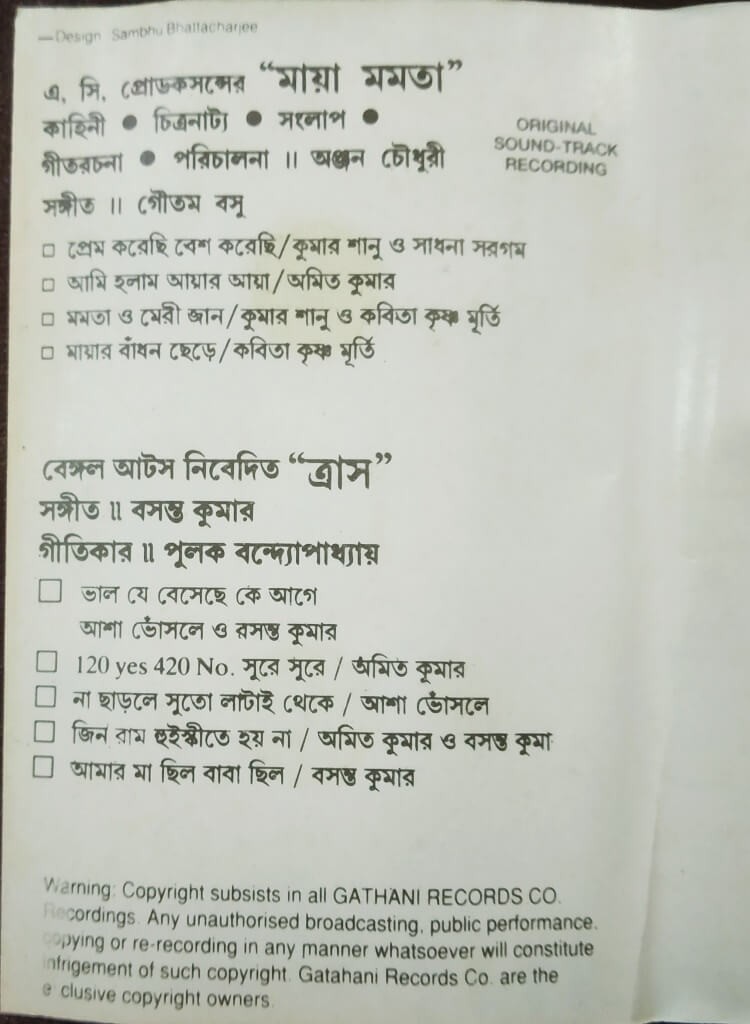 —Design Sambhu Bhattacharjee
এ, সি, প্রোডকসন্সের “মায়া মমতা”
কাহিনী ● চিত্রনাট্য ● সংলাপ ●
গীতরচনা ● পরিচালনা ॥ অঞ্জন চৌধুরী
ORIGINAL
SOUND-TRACK
RECORDING
সঙ্গীত ॥ গৌতম বসু
□ প্রেম করেছি বেশ করেছি/কুমার শানু ও সাধনা সরগম
□ আমি হলাম আয়ার আয়া/অমিত কুমার
□ মমতা ও মেরী জান/কুমার শানু ও কবিতা কৃষ্ণ মূর্তি
□ মায়ার বাঁধন ছেড়ে/কবিতা কৃষ্ণ মূর্তি
বেঙ্গল আর্টস নিবেদিত “ত্রাস”
সঙ্গীত ॥ বসন্ত কুমার
গীতিকার ॥ পুলক বন্দ্যোপাধ্যায়
□ ভাল যে বেসেছে কে আগে
আশা ভোঁসলে ও বসন্ত কুমার
□ 120 yes 420 No. সূরে সূরে / অমিত কুমার
□ না ছাড়লে সূতো লাটাই থেকে / আশা ভোঁসলে
□ জিন রাম হুইস্কীতে হয় না / অমিত কুমার ও বসন্ত কুমা
□ আমার মা ছিল বাবা ছিল / বসন্ত কুমার
Warning: Copyright subsists in all GATHANI RECORDS CO.
Recordings. Any unauthorised broadcasting, public performance.
copying or re-recording in any manner whatsoever will constitute
infrigement of such copyright. Gatahani Records Co. are the
e clusive copyright owners.